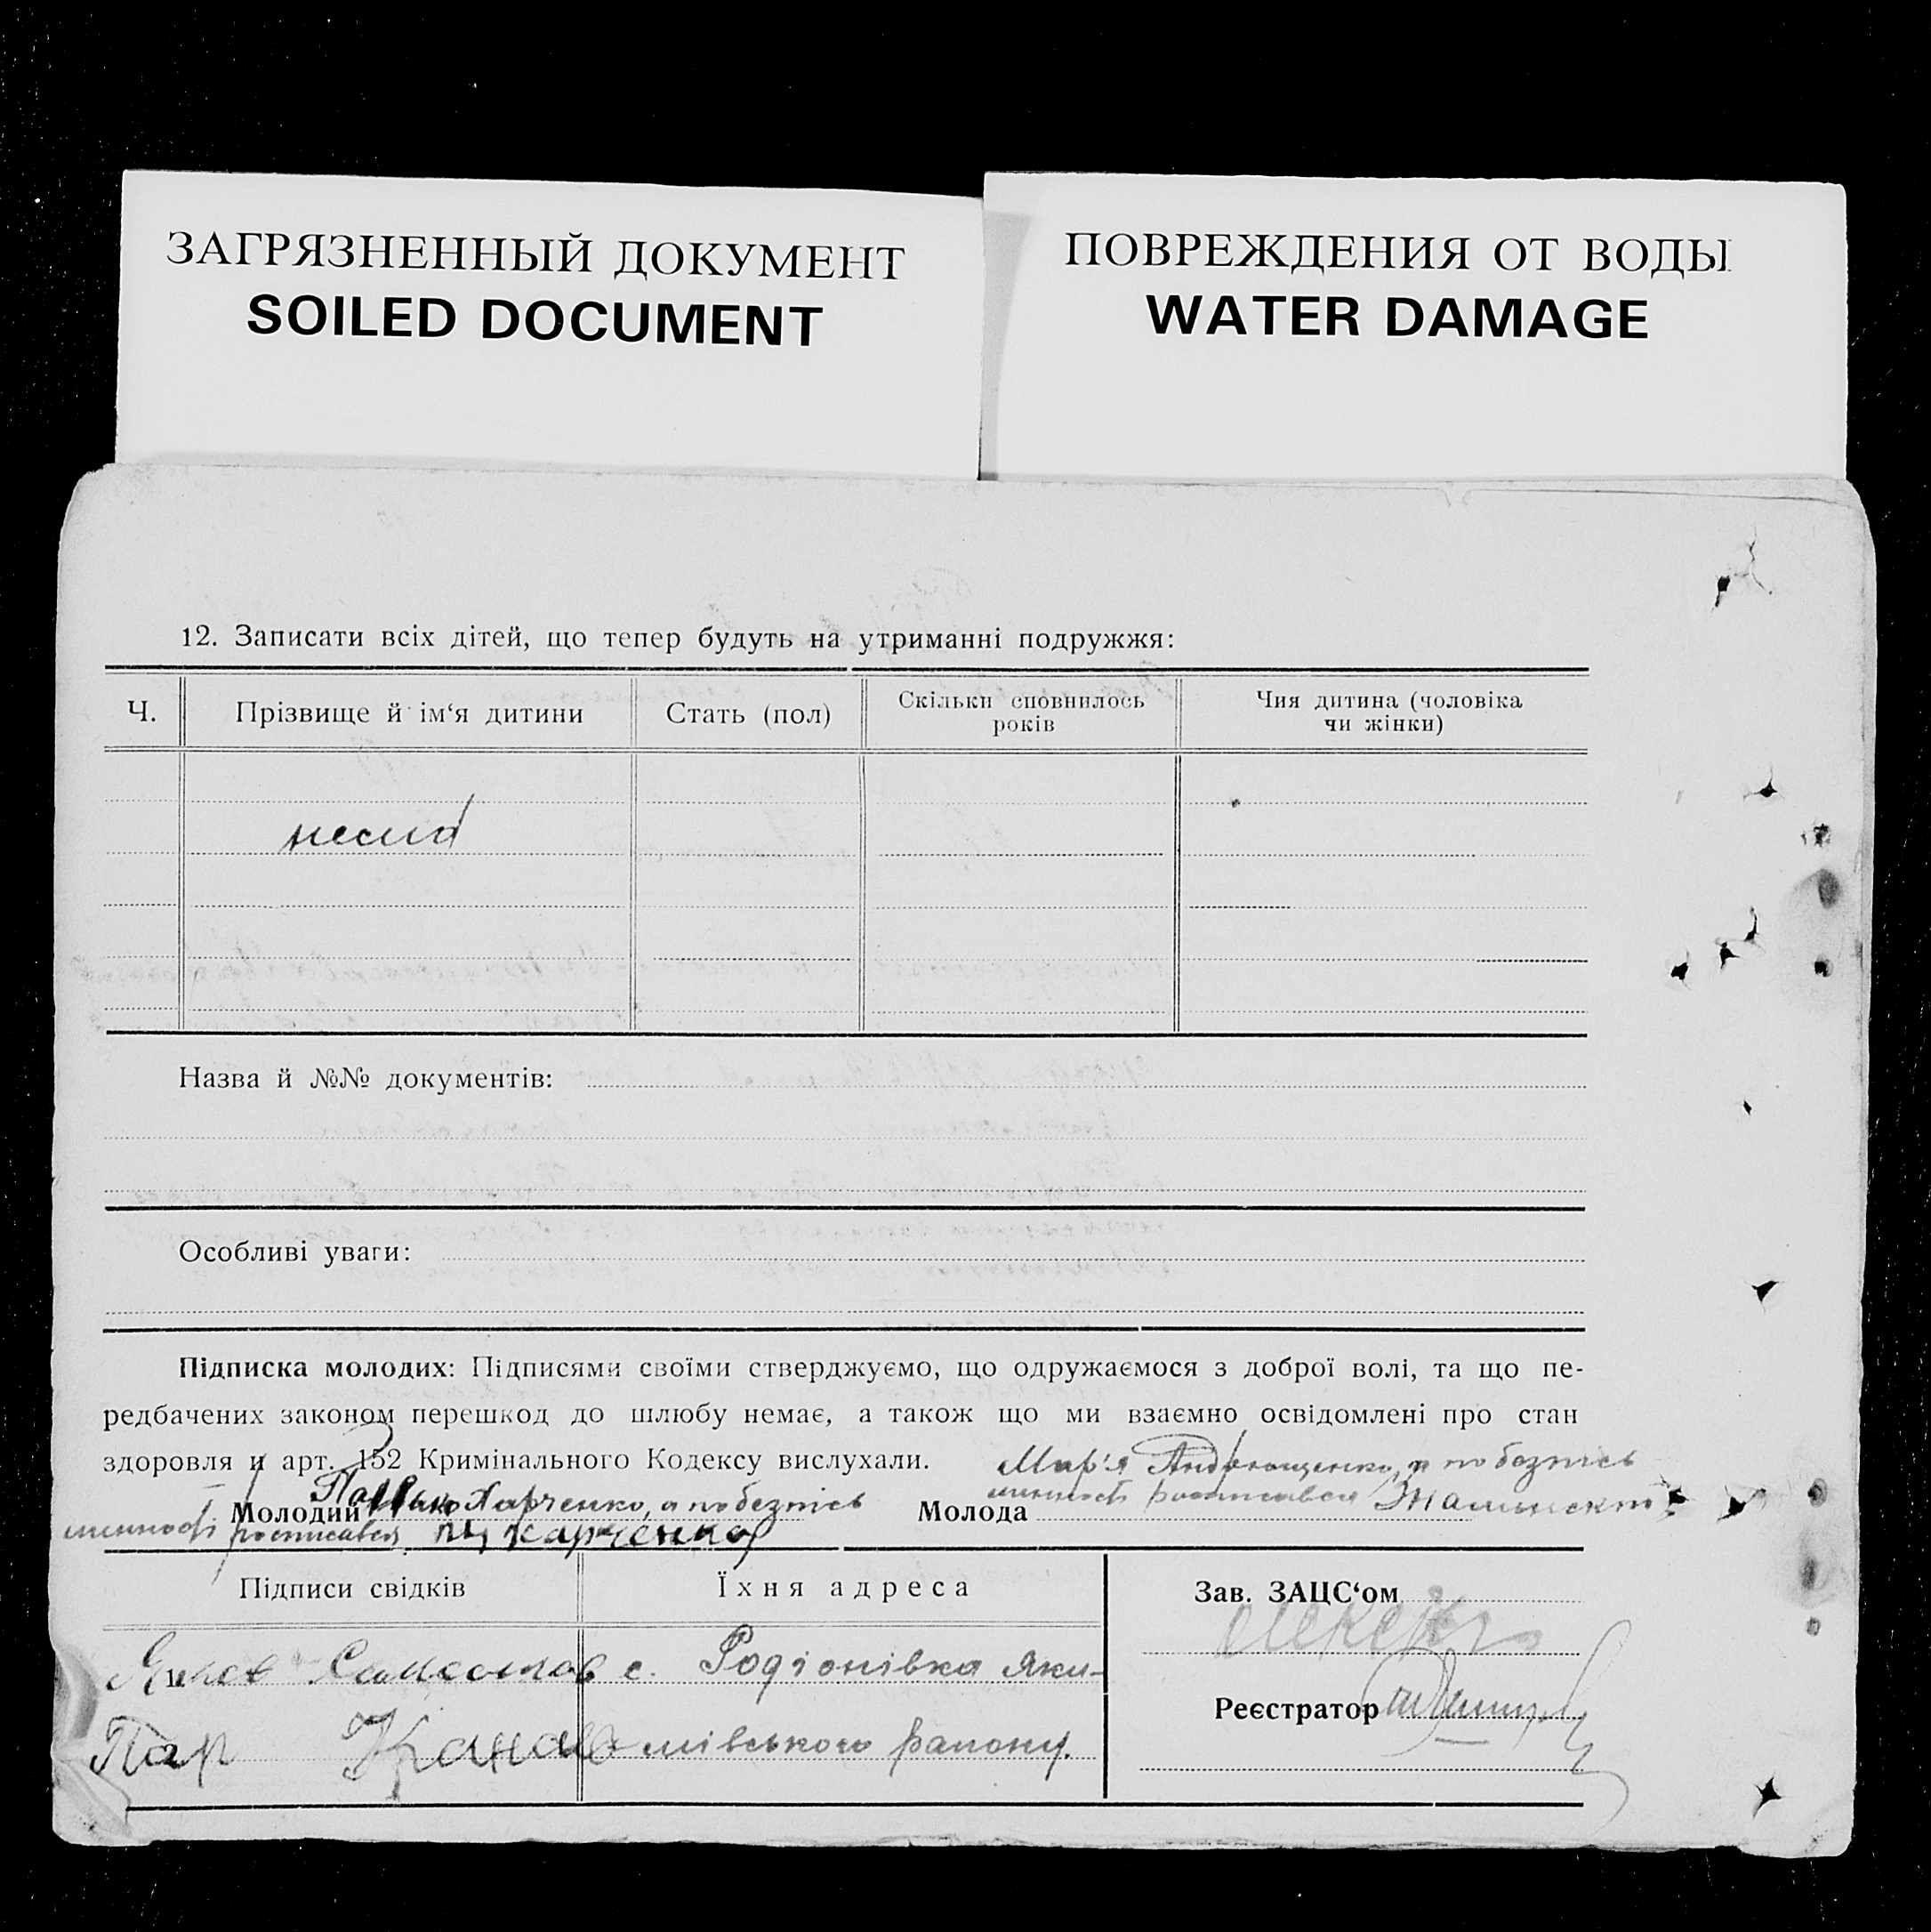 ЗАГРЯЗНЕННЫЙ ДОКУМЕНТ
SOILED DOCUMENT
ПОВРЕЖДЕНИЯ ОТ ВОДЫ
WATER DAMAGE
12. Записати всіх дітей, що тепер будуть на утриманні подружжя:
Ч. Прізвище й ім‘я дитини Стать (пол) Скільки сповнилось років Чия дитина (чоловіка чи жінки)
Назва й №№ документів:
Особливі уваги:
Підписка молодих: Підписями своїми стверджуємо, що одружаємося з доброї волі, та що пе-
редбачених законом перешкод до шлюбу немає, а також що ми взаємно освідомлені про стан
здоровля й арт. 152 Кримінального Кодексу вислухали.
Мар'я Андрющенко, а по безпісь
Молодий Харченко, а по безпісь
Молода менності росписався
менності росписався Харченко
Підписи свідків Їхня адреса
Зав. ЗАЦС‘ом
с. Родіонівка Яки-
Реєстратор
мівського району.